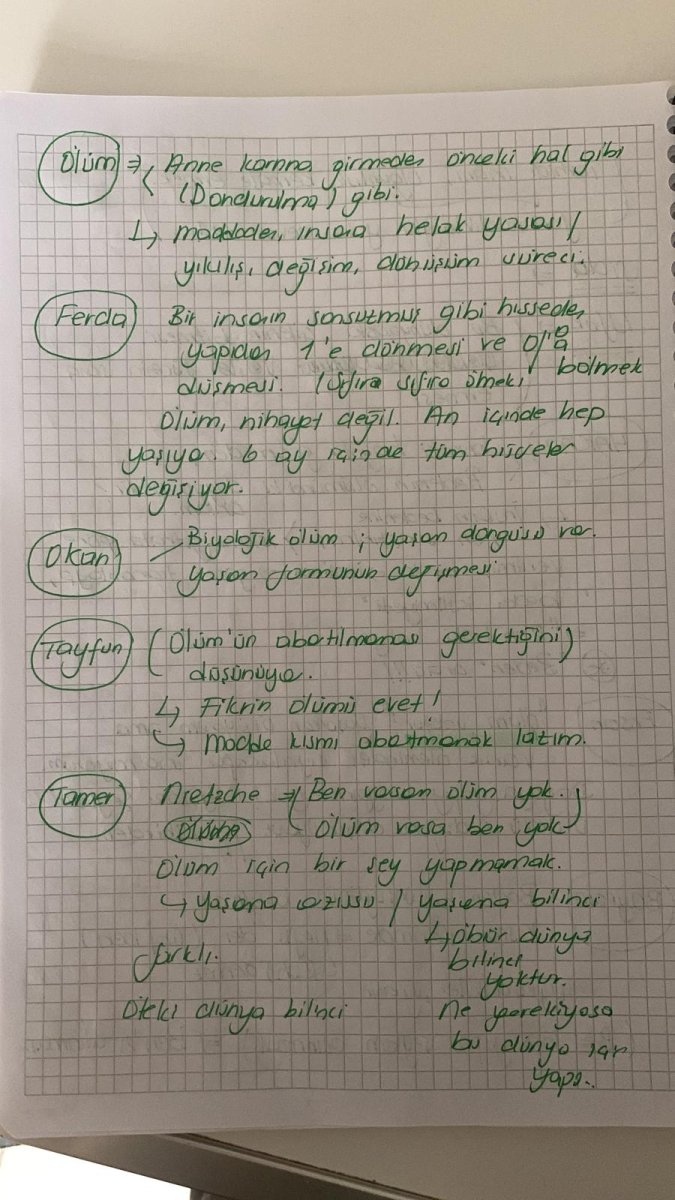 Ölüm ⇒ Anne karnına girmeden önceki hal gibi
(Dondurulma) gibi.
↳ maddeden, insana helak yasası /
yıkılış, değişim, dönüşüm süreci.
Ferda Bir insanın sonsuzmuş gibi hisseden
yapıdan 1'e dönmesi ve 0'a
düşmesi. (Sıfıra sıfıra örneği bölmek
Ölüm, nihayet değil. An içinde hep
yaşıyo. 6 ay içinde tüm hücreler
değişiyor.
Okan Biyolojik ölüm ; yaşam döngüsü var.
yaşam formunun değişmesi
Tayfun (Ölüm'ün abartılmaması gerektiğini)
düşünüyo.
↳ Fikrin ölümü evet!
↳ Madde kısmı abartmamak lazım.
Tamer Nietzche ⇒ Ben varsam ölüm yok.
ölüm varsa ben yok
Ölüm için bir şey yapmamak.
↳ yaşama arzusu / yaşama bilinci
farklı. ↳ öbür dünya
bilinci
yoktur.
Öteki dünya bilinci ne gerekiyosa
bu dünya için
yapı..